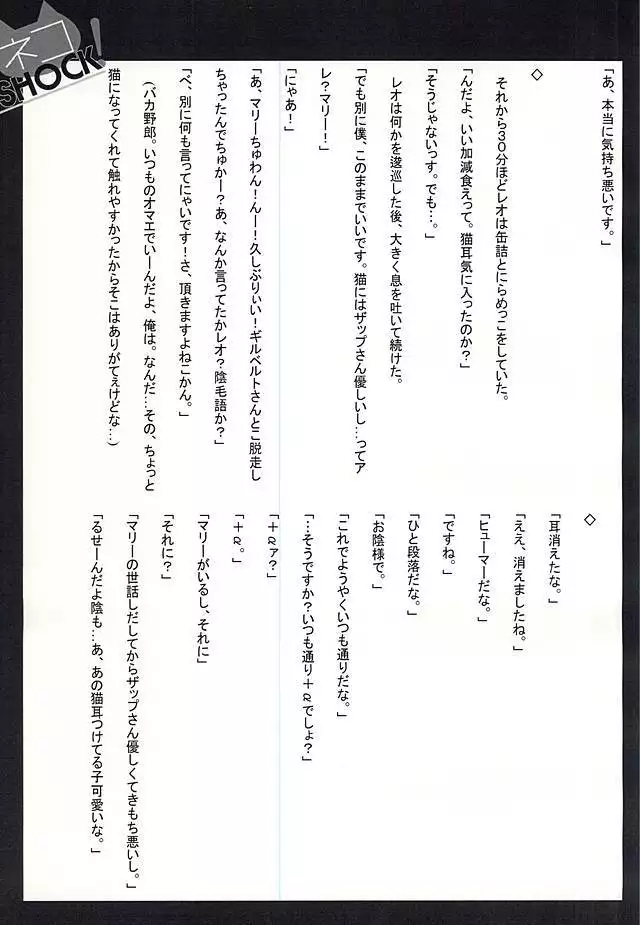 ネコ
SHOCK!
「あ、本当に気持ち悪いです。」
◇
それから３０分ほどレオは缶詰とにらめっこをしていた。
「んだよ、いい加減食えって。猫耳気に入ったのか？」
「そうじゃないっす。でも…。」
レオは何かを逡巡した後、大きく息を吐いて続けた。
「でも別に僕、このままでいいです。猫にはザップさん優しいし…ってア
レ？マリー！」
「にゃあ！」
「あ、マリーちゅわん！んー！久しぶりぃい！ギルベルトさんとこ脱走し
ちゃったんでちゅかー？あ、なんか言ってたかレオ？陰毛語か？」
「べ、別に何も言ってにゃいです！さ、頂きますよねこかん。」
（バカ野郎。いつものオマエでいーんだよ、俺は。なんだ…その、ちょっと
猫になってくれて触れやすかったからそこはありがてえけどな…）
◇
「耳消えたな。」
「ええ、消えましたね。」
「ヒューマーだな。」
「ですね。」
「ひと段落だな。」
「お陰様で。」
「これでようやくいつも通りだな。」
「…そうですか？いつも通り＋αでしょ？」
「＋αァ？」
「＋α。」
「マリーがいるし、それに」
「それに？」
「マリーの世話しだしてからザップさん優しくてきもち悪いし。」
「るせーんだよ陰も…あ、あの猫耳つけてる子可愛いな。」